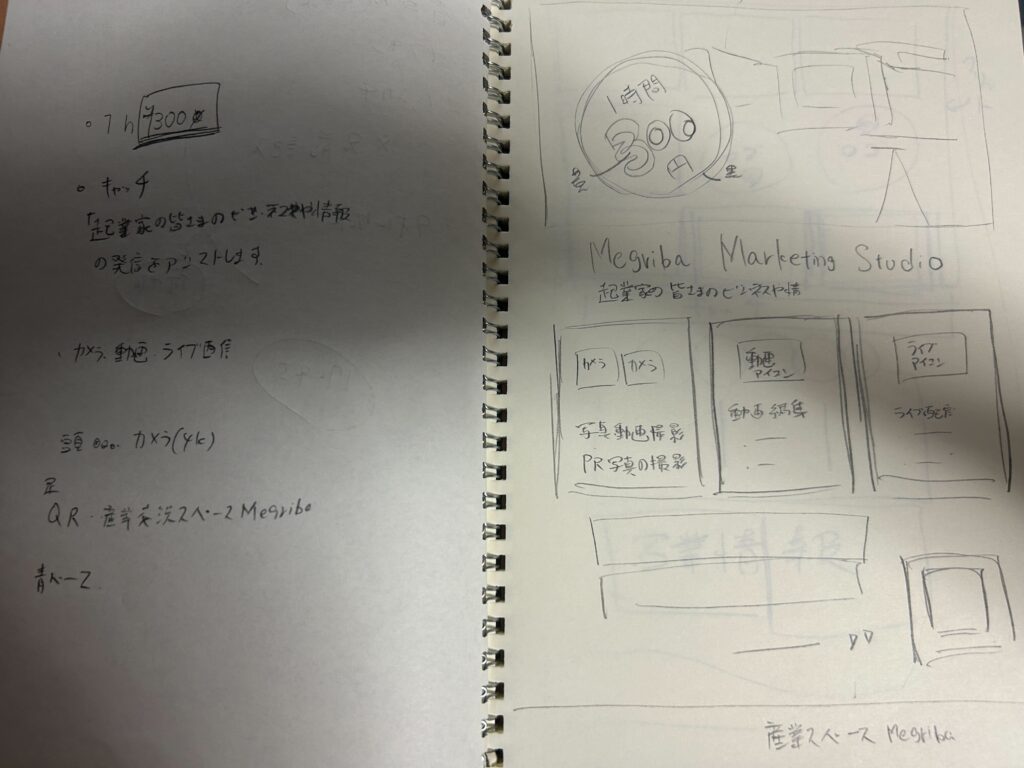 1h ¥300
キャッチ
「起業家の皆さまのビジネスや情報
の発信をアシストします。
・カメラ、動画・ライブ配信
頭 カメラ(4k)
足
QR・産業スペース Megriba
青ベース
1時間
300
円
黒
Megriba Marketing Studio
起業家の皆さまのビジネスや情
カメラ カメラ
写真動画撮影
PR写真の撮影
動画
アイコン
動画編集
ライブ
アイコン
ライブ配信
産業スペース Megriba